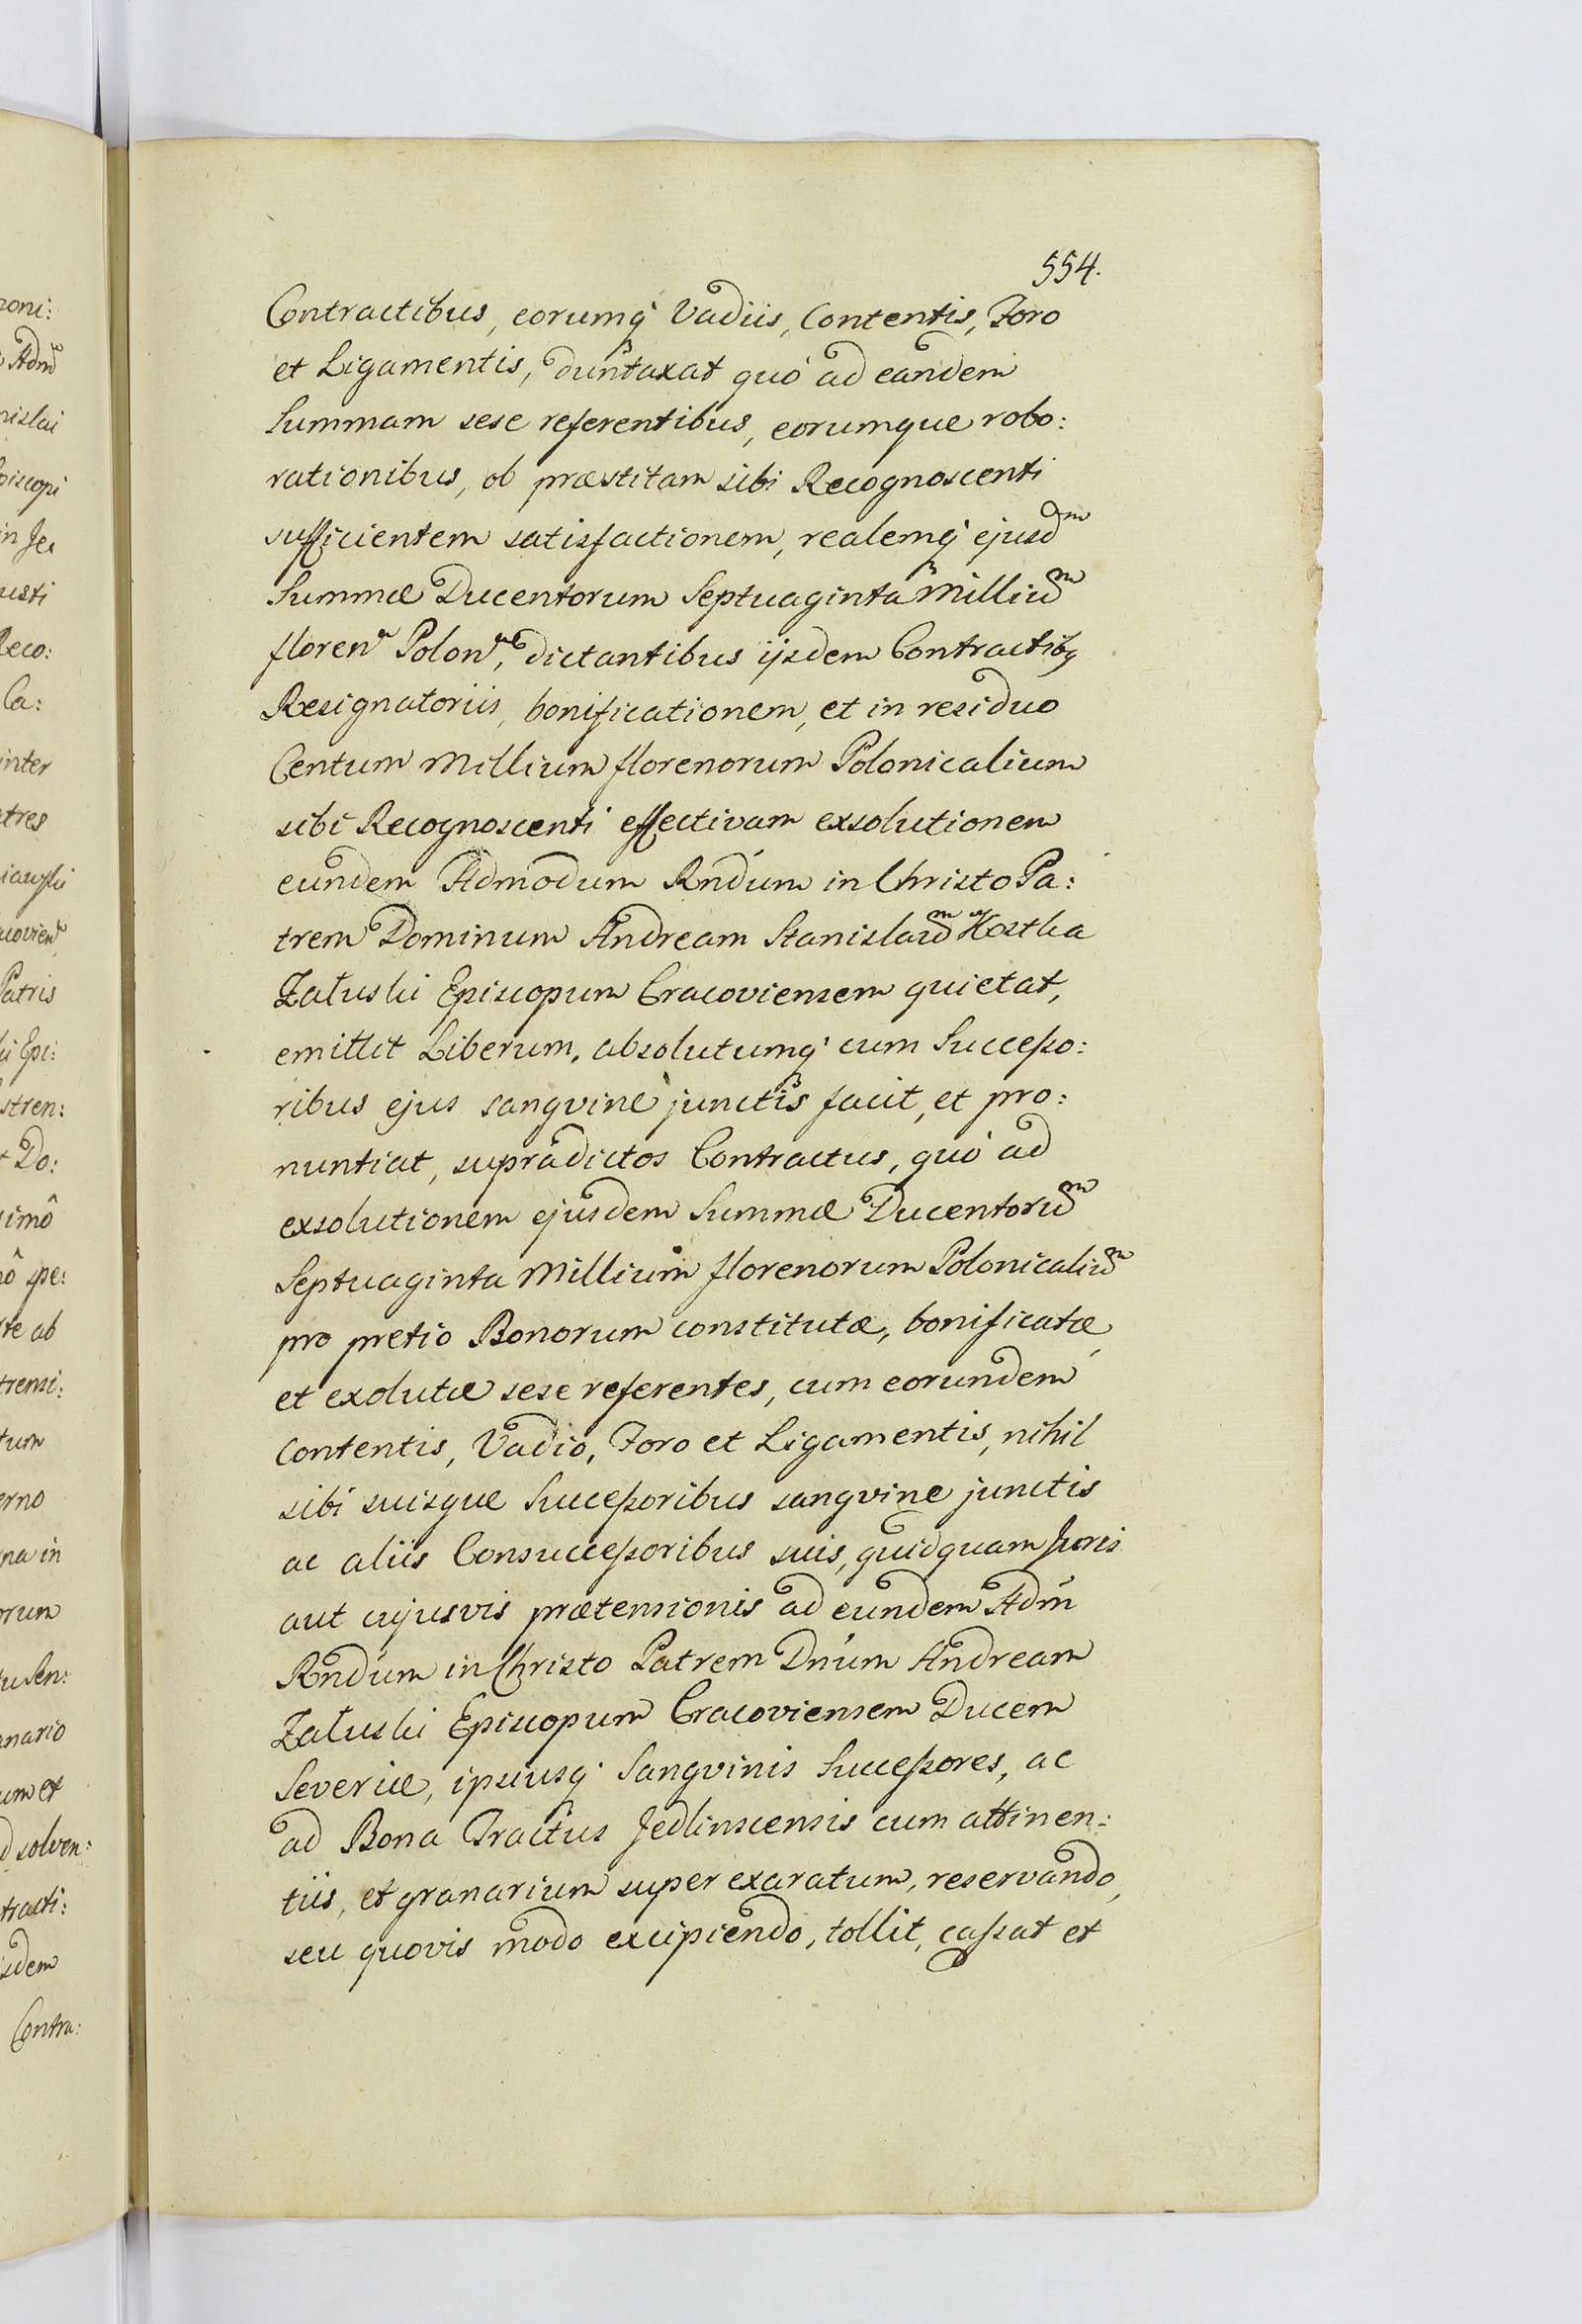 554.
Contractibus, eorumq́ Vadiis, Contentis, Foro
et Ligamentis, duntaxat quò ad eandem
Summam sese referentibus, eorumque robo:
rationibus, ob præstitam sibi Recognoscenti
sufficientem satisfactionem, realemq́ ejusdᵐ
Summæ Ducentorum Septuaginta Milliuᵐ
floren Polon, dictantibus ijsdem Contractibꝫ
Resignatoriis, bonificationem, et in residuo
Centum Millium florenorum Polonicalium
sibi Recognoscenti effectivam exsolutionem
eundem Admodum Rndum in Christo Pa:
trem Dominum Andream Stanislauᵐ Kostka
Załuski Episcopum Cracoviensem quietat,
emittit Liberum, absolutumq́ cum Succeßo:
ribus ejus sangvine junctis facit, et pro:
nuntiat, supradictos Contractus, quò ad
exsolutionem ejusdem Summæ Ducentoruᵐ
Septuaginta Millium florenorum Polonicaliuᵐ
pro pretio Bonorum constitutæ, bonificatæ,
et exolutæ sese referentes, cum eorundem
Contentis, Vadio, Foro et Ligamentis, nihil
sibi suisque Succeßoribus sangvine junctis
ac aliis Consucceßoribus suis, quidquam Juris
aut cujusvis prætensionis ad eundem Adm
Rndum in Christo Patrem Dnum Andream
Załuski Episcopum Cracoviensem Ducem
Severiæ, ipsiusq́ Sangvinis Succeßores, ac
ad Bona Tractus Jedlinscensis cum attinen:
tiis, et granarium super exaratum, reservando,
seu quovis modo excipiendo, tollit, caßat et